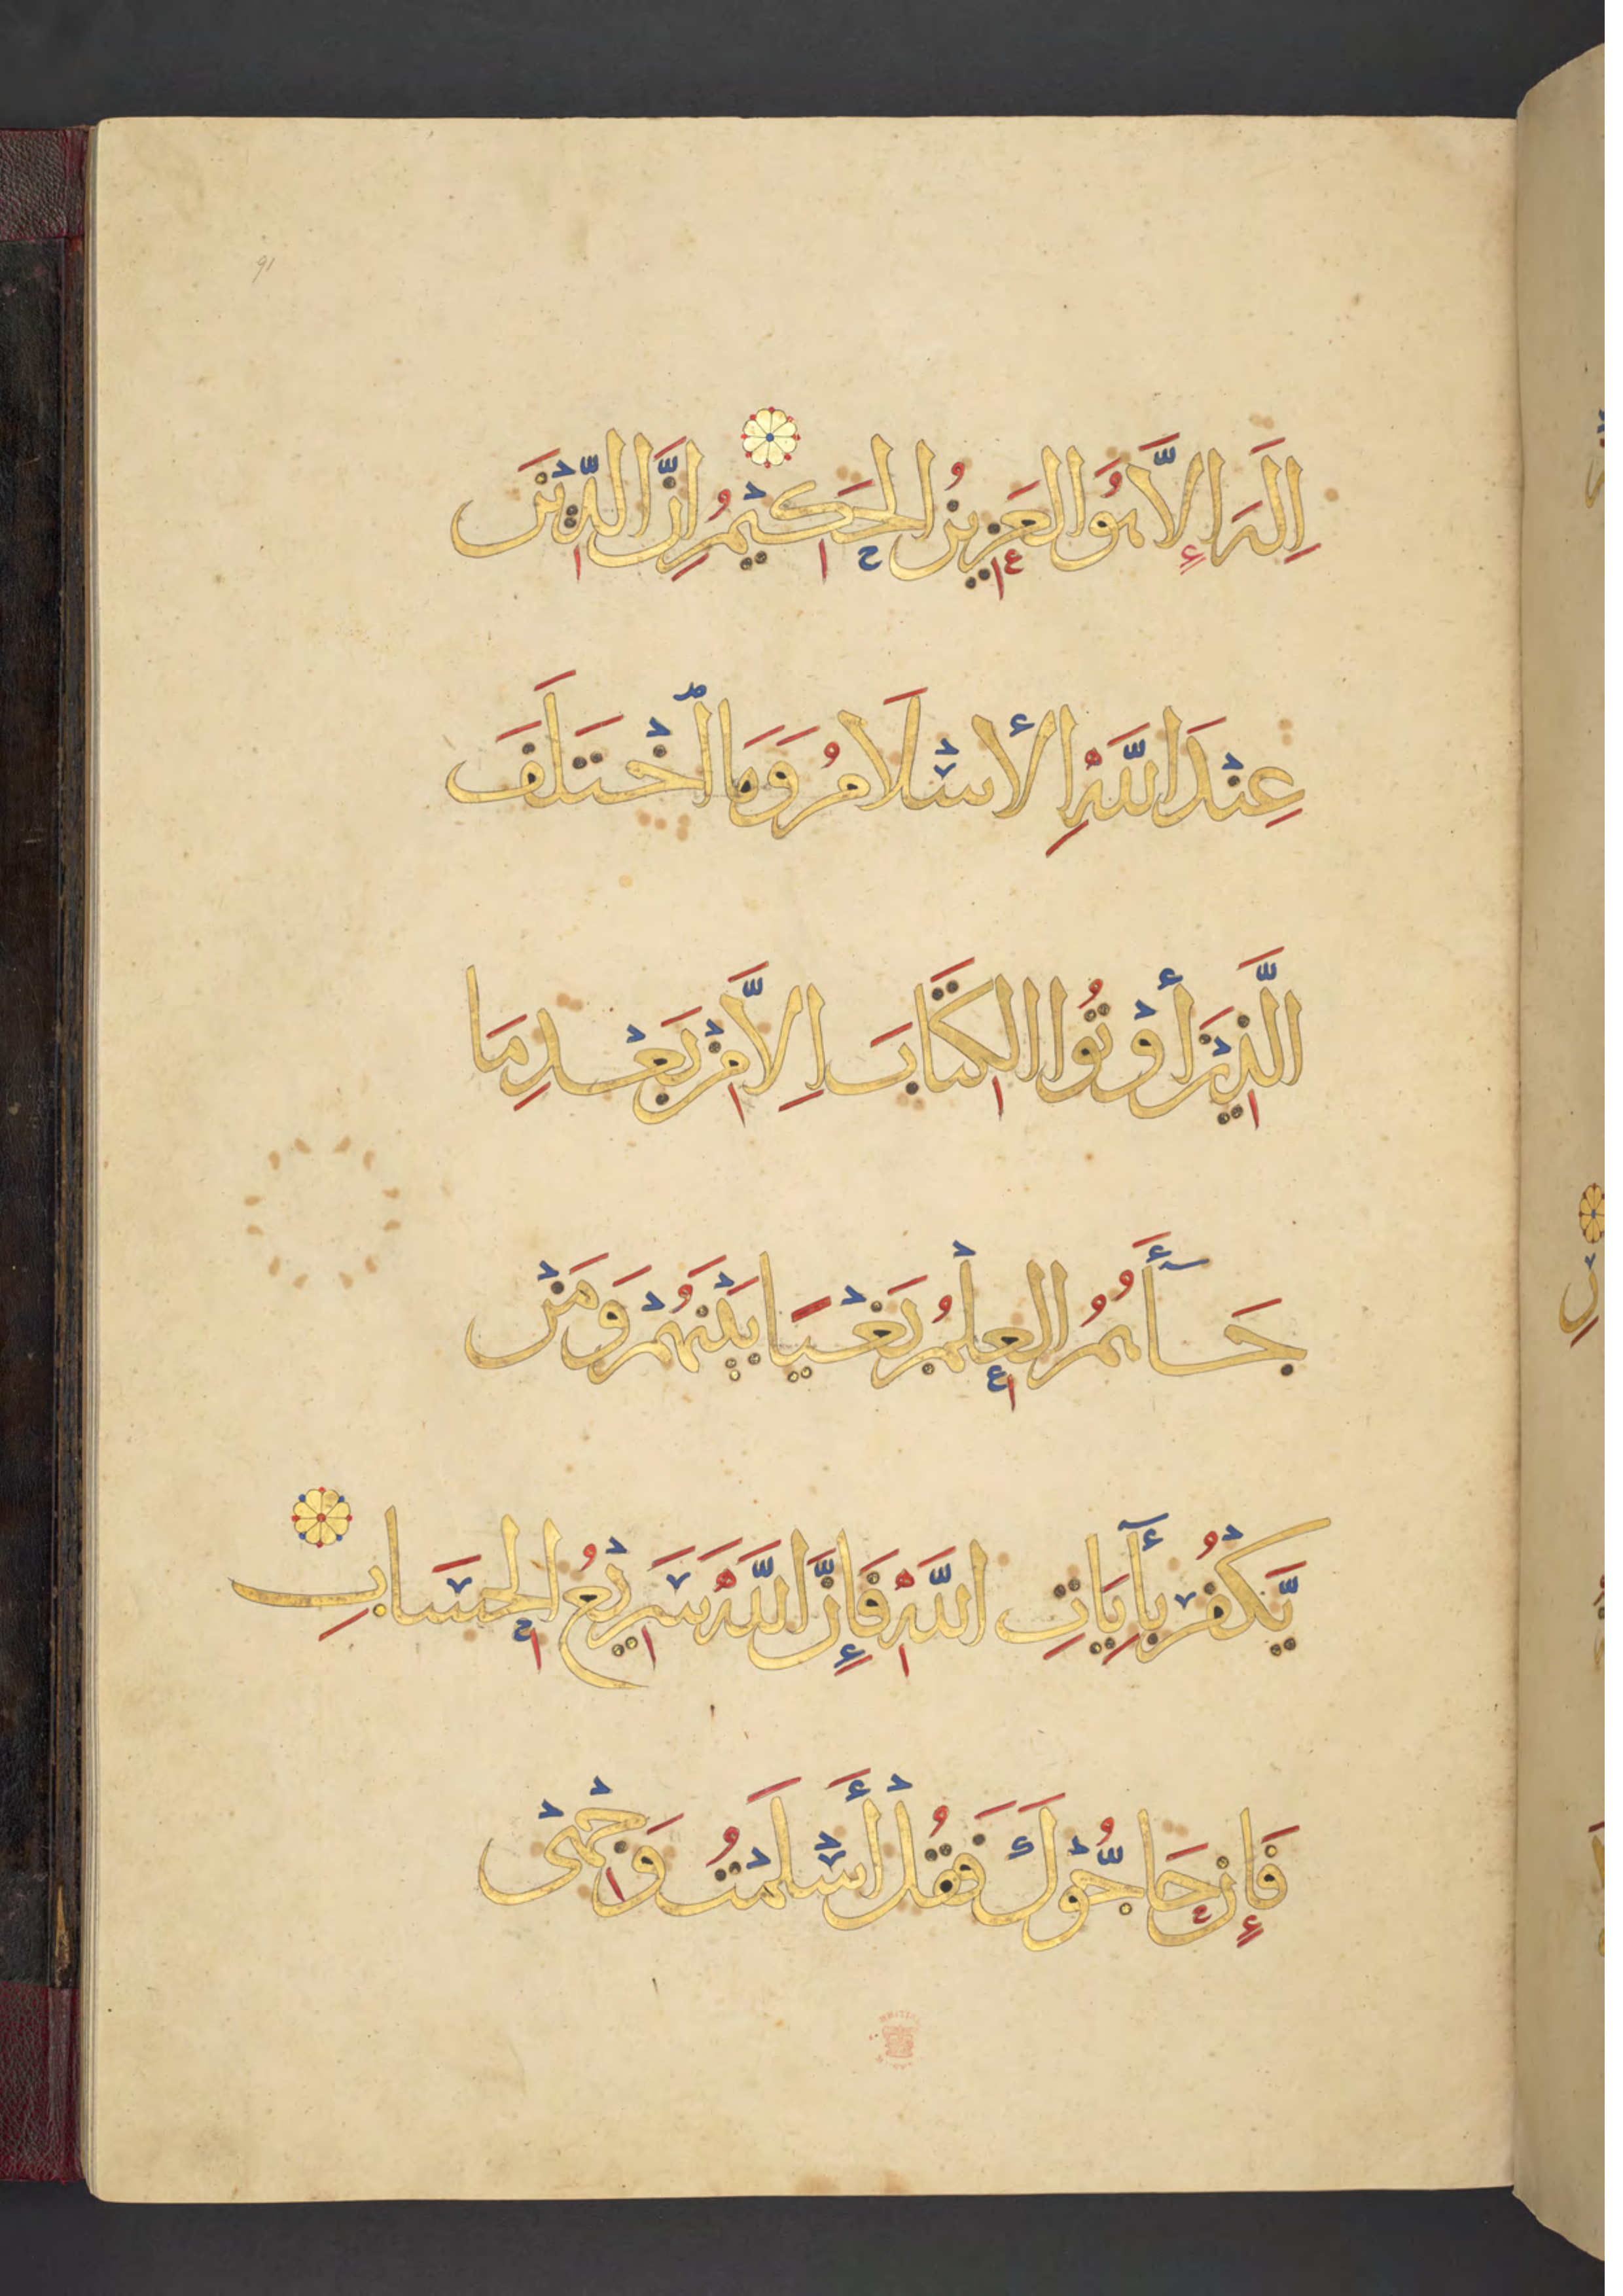 91
اِلَهَ اِلَّا هُوَ العَزِيزُ الحَكِيْمُ اِنَّ الدِّيْنَ
عِنْدَ اللَّهِ الأِسْلَامُ وَمَا اخْتَلَفَ
الَّذِيْنَ أُوْتُوا الكِتَابَ اِلَّا مِنْ بَعْدِ مَا
جَآءَهُمُ العِلْمُ بَغْيًا بَيْنَهُمْ وَمَنْ
يَّكْفُرْ بِأٓيَاتِ اللَّهِ فَإِنَّ اللَّهَ سَرِيْعُ الحِسَابِ
فَإِن حَاجُّوْكَ فَقُلْ أَسْلَمْتُ وَجْهِيْ